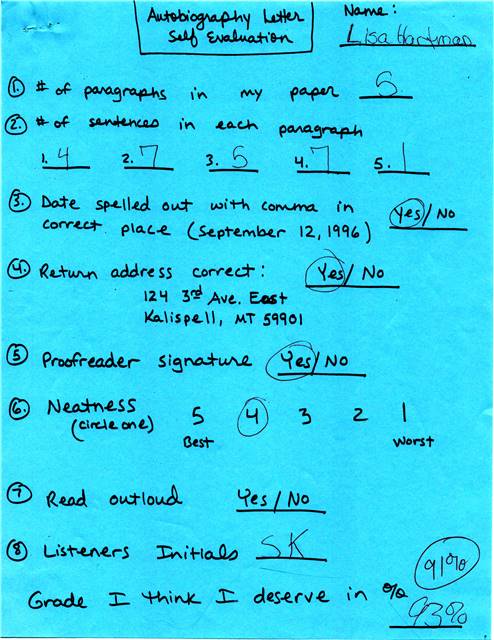 Autobiography Letter
Self Evaluation
Name:
Lisa Hartman
1. # of paragraphs in my paper 5
2. # of sentences in each paragraph
1. 4 2. 7 3. 5 4. 7 5. 1
3. Date spelled out with comma in
correct place (September 12, 1996) Yes/No
4. Return address correct: Yes/No
124 3rd Ave. East
Kalispell, MT 59901
5 Proofreader signature Yes/No
6. Neatness 5 4 3 2 1
(circle one) Best Worst
7 Read outloud Yes/No
8 Listeners Initials SK
91%
Grade I think I deserve in %
93%